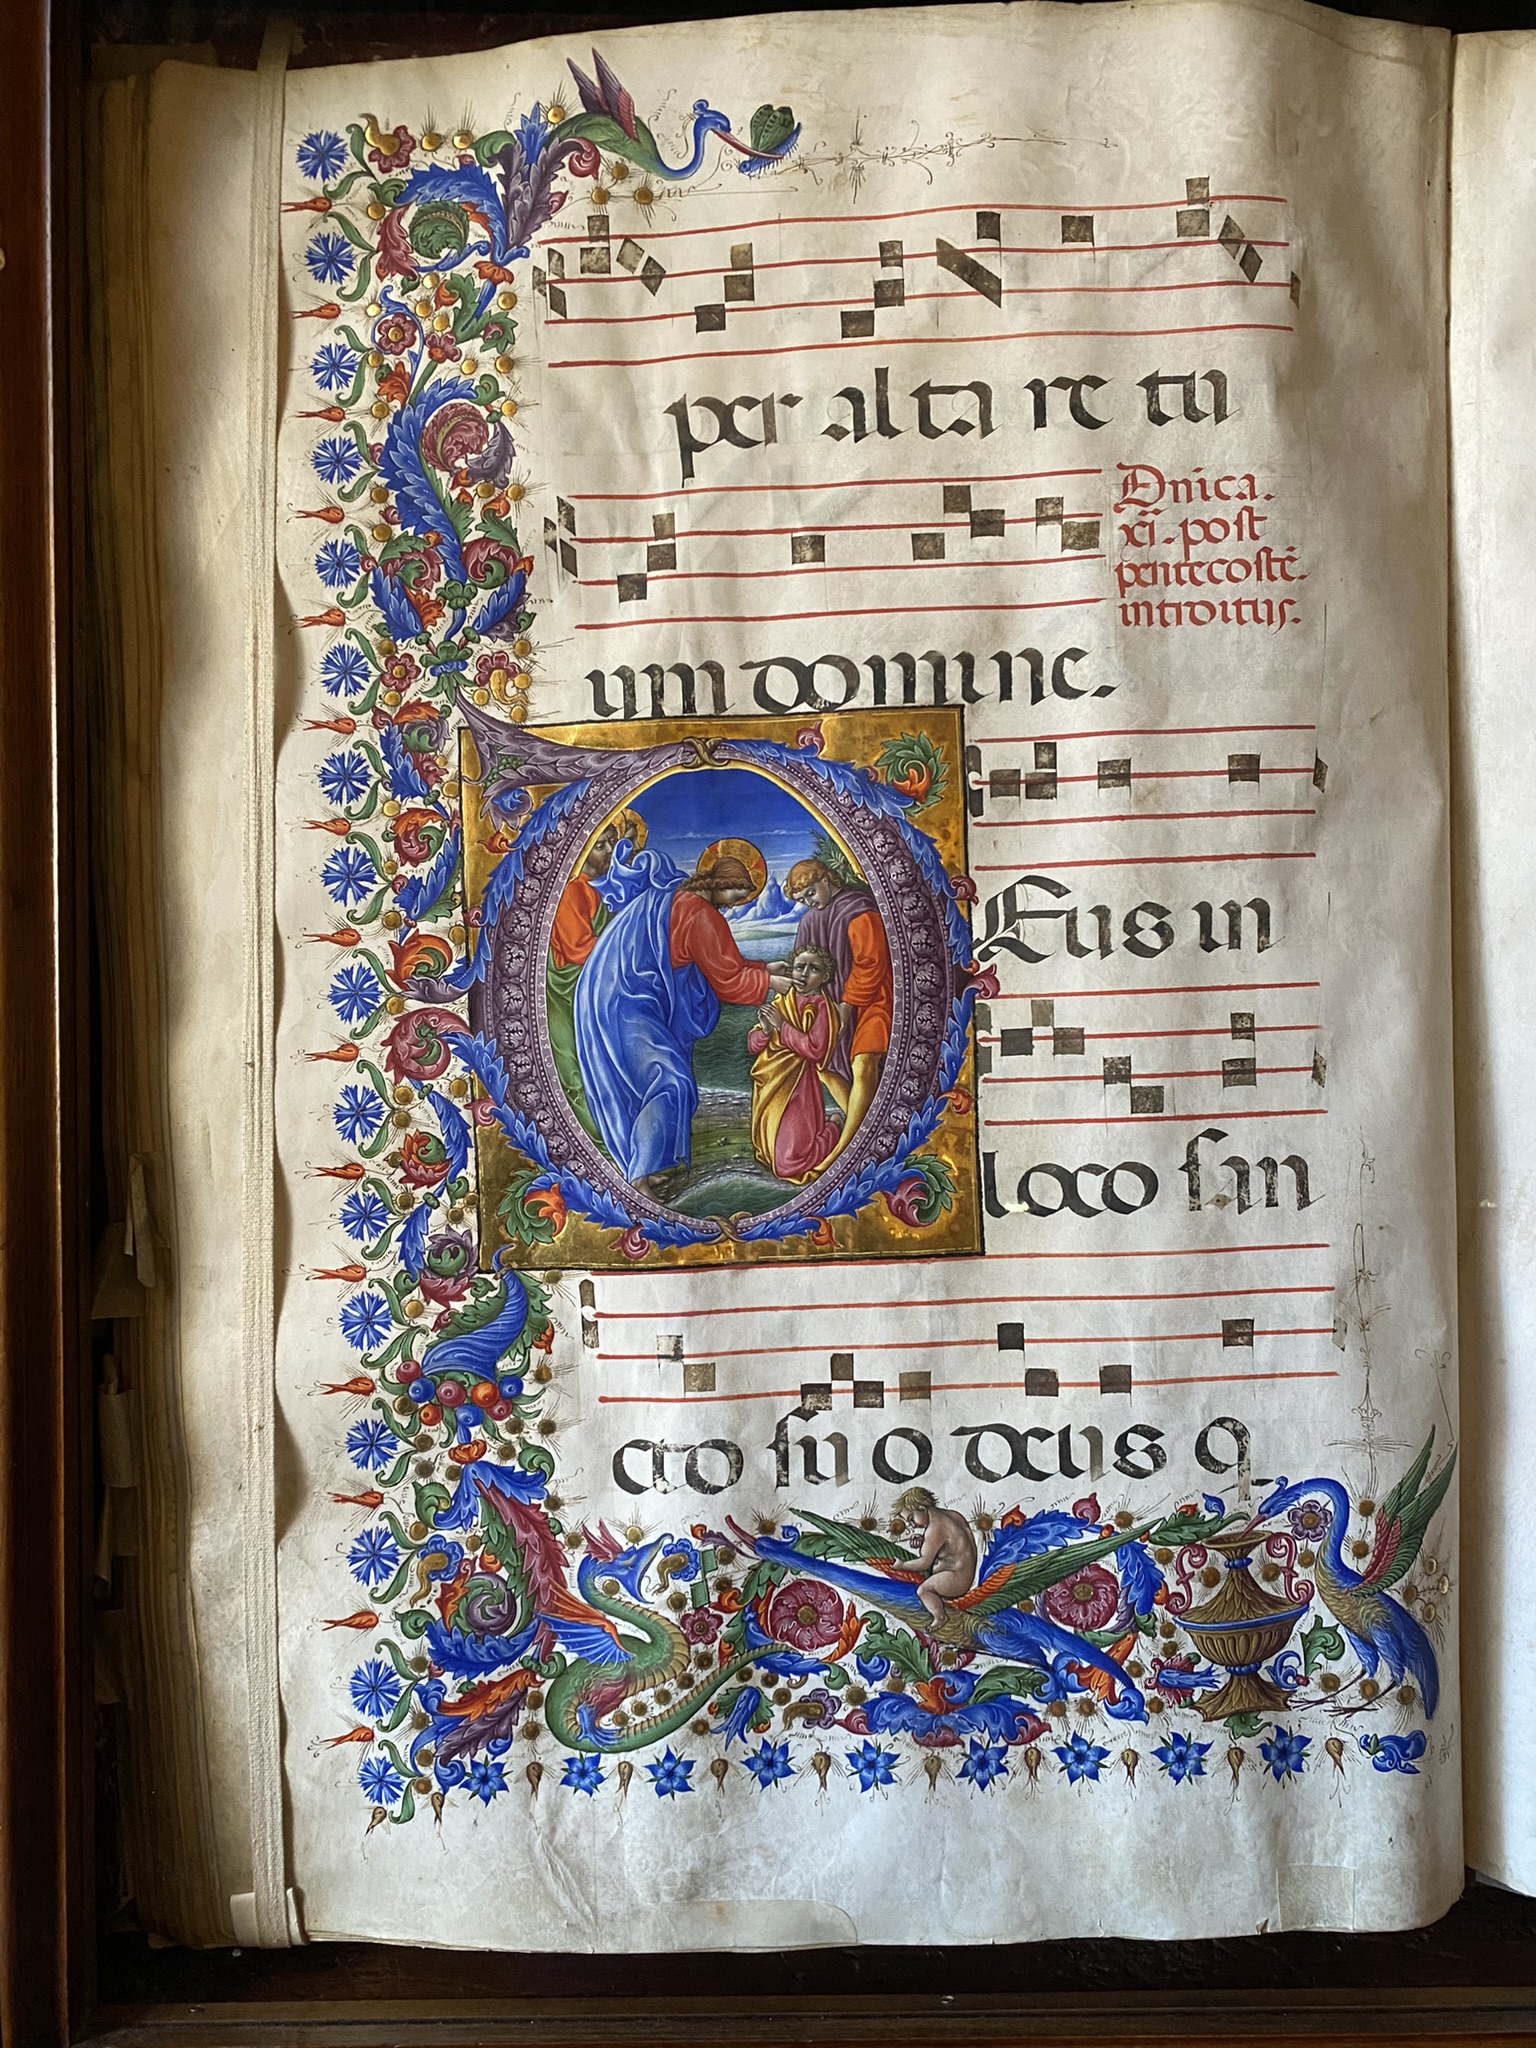 per alta re tu
Dnica.
xi. post
pentecostē.
introitus.
um domine.
DEus in
loco san
cto su o deus q